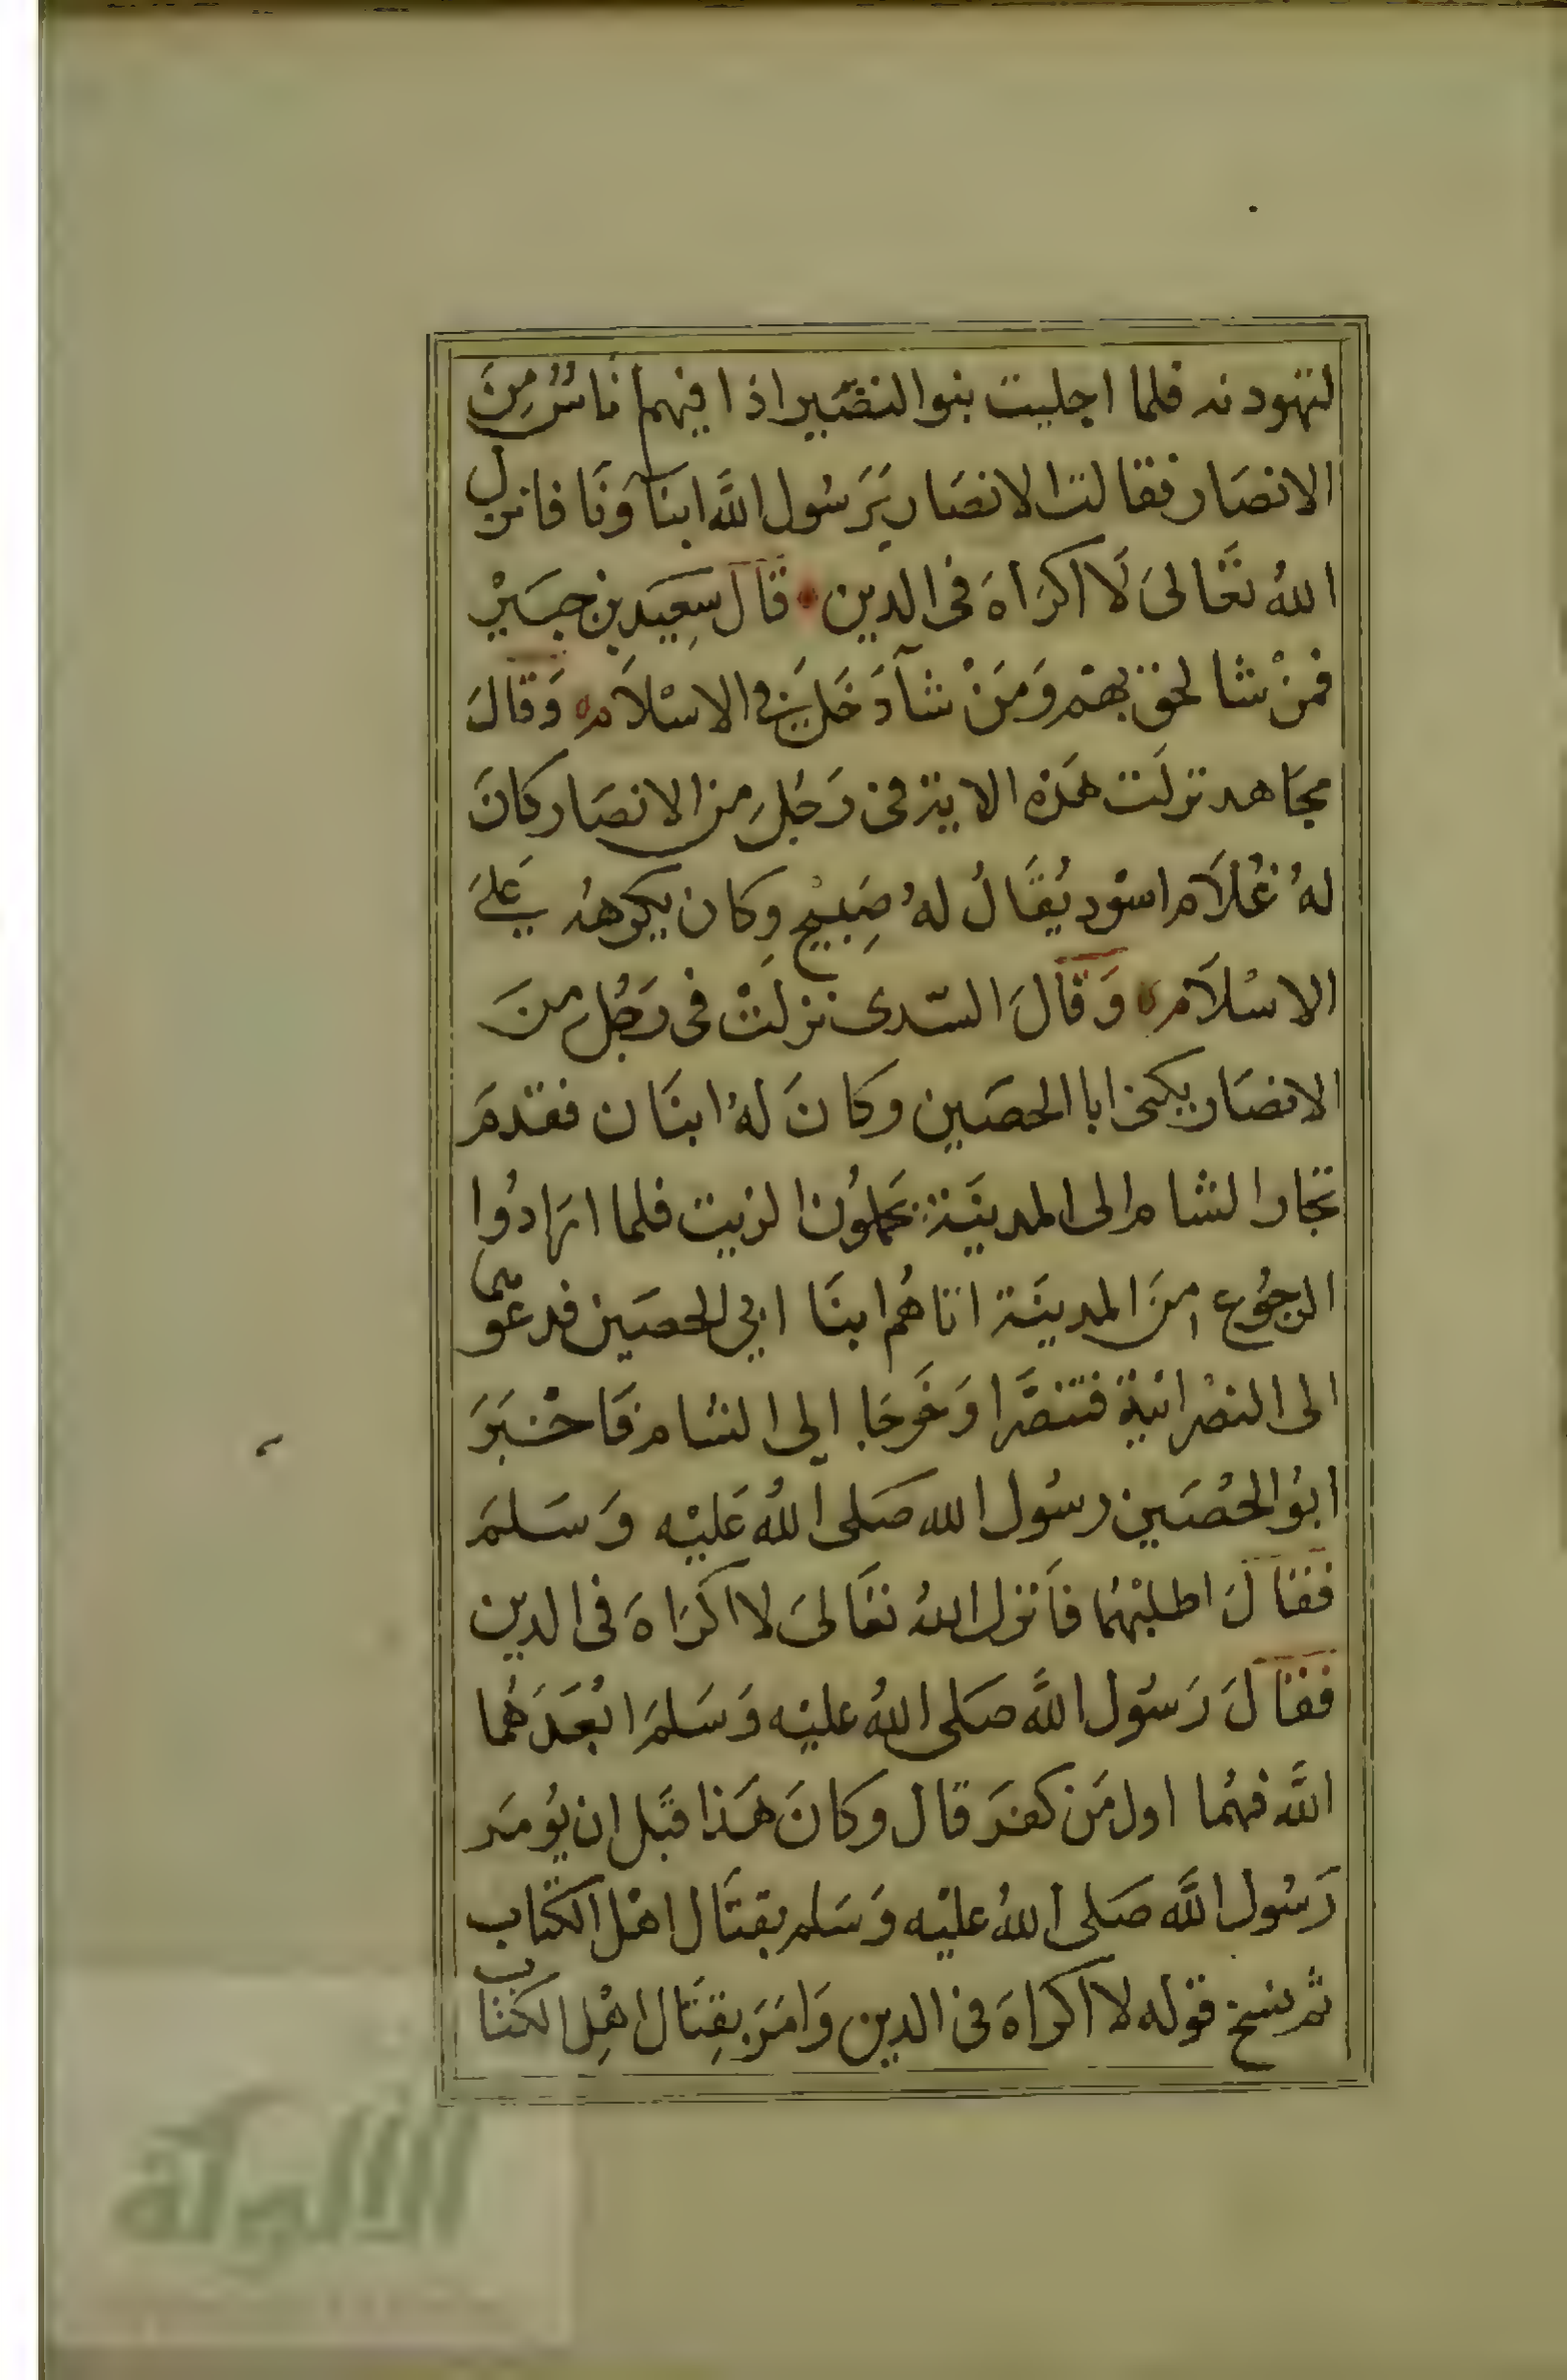 لتهودنه فلما اجليت بنو النضير اذا فيهم ناسٌ مِنَ
الانصَار فقالت الانصَار يَرَسُول اللَّه ابنَآوَنَا فانزل
اللهُ تعَالىَ لَا اكرَاهَ فى الدين قَالَ سعِيَد بن جبَيْر
فمَنْ شا لحق بهم وَمَنْ شآ دَخَل في الاسْلاَم وَقَالَ
مجَاهد نزلَت هَذه الاية فى رَجُلٍ مِن الانصَار كانَ
لهُ غُلاَم اسْود يُقَالُ لهُ صبيْح وكان يكرههُ علىَ
الاسْلاَم وَقَالَ السّدى نزلتْ فى رَجُلٍ منَ
الانصَار يكنى ابا الحصَين وكانَ لهُ ابنَان فقدمَ
تجار الشام الى المدينَة يحملُون الزيت فلما ارَادُوا
الرجُوع منَ المدينَة اتاهُم ابنَا ابي الحصَين فدعوهما
الى النصْرانية فتنصَّرا وَخَرجَا الى الشام فَاخْبَرَ
ابُو الحُصَين رسُول الله صَلى اللهُ عَليْه وَسَلمَ
فقَالَ اطلبْهُما فاَنزل اللهُ تعَالىَ لا اكرَاهَ فى الدين
فقَالَ رَسُول اللَّه صَلى اللهُ عليْه وَسَلمَ ابْعَدَهُما
اللَّه فهُما اول مَن كفرَ قال وكانَ هَذا قبَل ان يُومَر
رَسُول اللَّه صَلى اللهُ عليْه وَسَلم بقتَال اهْل الكتاب
ثم نسخ قوْله لا اكراهَ فى الدين وَامَرَ بقِتَال اهْلِ الكتاب
الألوكة